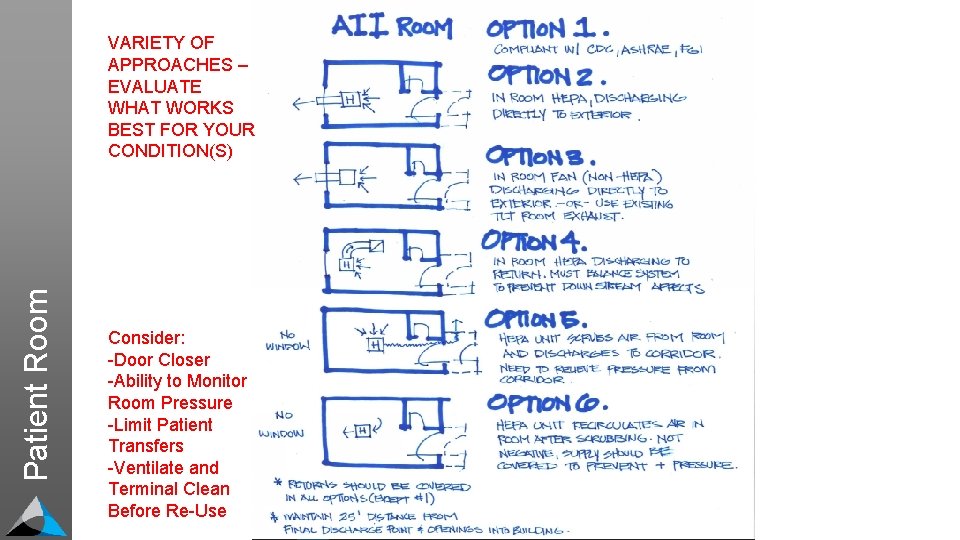 Patient Room
VARIETY OF
APPROACHES –
EVALUATE
WHAT WORKS
BEST FOR YOUR
CONDITION(S)
Consider:
-Door Closer
-Ability to Monitor
Room Pressure
-Limit Patient
Transfers
-Ventilate and
Terminal Clean
Before Re-Use
AII ROOM
OPTION 1.
COMPLIANT W/ CDC, ASHRAE, FGI
OPTION 2.
IN ROOM HEPA, DISCHARGING
DIRECTLY TO EXTERIOR.
H
OPTION 3.
IN ROOM FAN (NON-HEPA)
DISCHARGING DIRECTLY TO
EXTERIOR. -OR- USE EXISTING
TLT ROOM EXHAUST.
OPTION 4.
IN ROOM HEPA DISCHARGING TO
RETURN. MUST BALANCE SYSTEM
TO PREVENT DOWN STREAM AFFECTS
H
OPTION 5.
HEPA UNIT SCRUBS AIR FROM ROOM
AND DISCHARGES TO CORRIDOR.
NEED TO RELIEVE PRESSURE FROM
CORRIDOR.
NO
WINDOW
H
OPTION 6.
HEPA UNIT RECIRCULATES AIR IN
ROOM AFTER SCRUBBING. NOT
NEGATIVE, SUPPLY SHOULD BE
COVERED TO PREVENT + PRESSURE.
NO
WINDOW
H
* RETURNS SHOULD BE COVERED
IN ALL OPTIONS (EXCEPT #1)
* MAINTAIN 25' DISTANCE FROM
FINAL DISCHARGE POINT & OPENINGS INTO BUILDING.